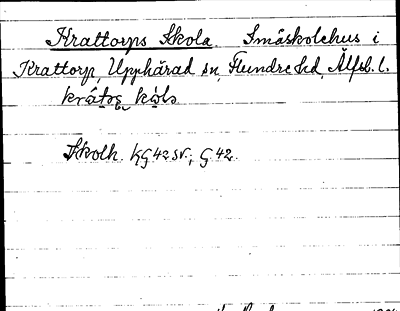 Krattorps Skola. Småskolehus i
Krattorp, Upphärad sn, Flundre hd, Älfsb. l.
Skolh. KG 42 SV.; G. 42.